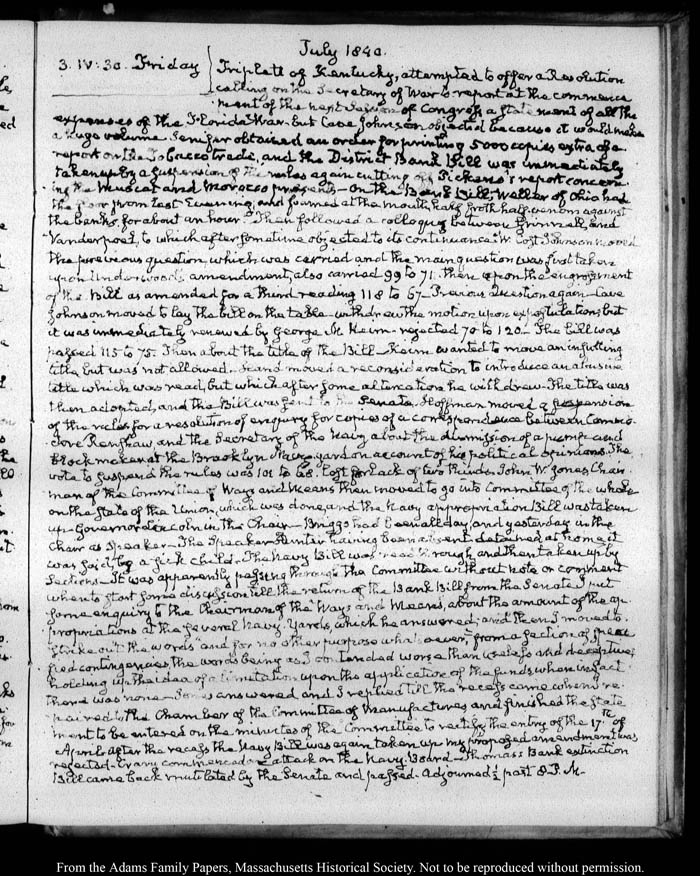 July 1840.
3. IV:30. Friday
Triplett of Kentucky, attempted to offer a Resolution
calling on the Secretary of War to report at the commence
ment of the next Session of Congress a statement of all the
expenses of the Florida War. but Cave Johnson objected because it would make
a huge volume. Jenifer obtained an order for printing 5000 copies extra of a
report on the Tobacco trade, and the District Bank Bill was immediately
taken up by a suspension of the rules again cutting off Pickens's report concern
ing the Muscat and Morocco presents— On the Bank Bill, Weller of Ohio had
the floor from last Evening, and foamed at the mouth, half froth half venom against
the banks, for about an hour— Then followed a colloquy between Grinnell, and
Vanderpoel, to which after some time objected to its continuance. W. Cost Johnson moved
the previous question, which was carried and the main question was first taken
upon Underwood's amendment, also carried 99 to 71. then upon the engrossment
of the Bill as amended for a third reading 118 to 67— Previous Question again— Cave
Johnson moved to lay the bill on the table— withdrew the motion upon expostulation; but
it was immediately renewed by George M. Keim— rejected 70 to 120— The bill was
passed 115 to 75. Then about the title of the Bill— Keim wanted to move an insulting
title, but was not allowed. moved a reconsideration to introduce an abusive
title which was read, but which after some altercation he withdrew. The title was
then adopted, and the Bill was sent to the Senate. Hoffman moved a suspension
of the rules for a resolution of enquiry for copies of a correspondence between Commo-
dore Renshaw and the Secretary of the Navy about the dismission of a pump and
block maker at the Brooklyn Navy-yard on account of his political opinions. The
vote to suspend the rules was 101 to 68. lost for lack of two thirds. John W. Jones Chair
man of the Committee of Ways and Means then moved to go into Committee of the whole
on the state of the Union, which was done, and the Navy appropriation Bill was taken
up— Governor Lincoln in the Chair— Briggs had been all day, and yesterday in the
Chair as Speaker— The Speaker Hunter having been absent detained at home it
was said, by a sick child. The Navy Bill was read through, and then taken up by
Sections— It was apparently passing through the Committee without note or comment
when to start some discussion till the return of the Bank Bill from the Senate I put
some enquiry to the Chairman of the Ways and Means, about the amount of the ap
propriations at the several Navy-Yards, which he answered; and then I moved to
strike out the words "and for no other purpose whatsoever," from a section of speci
fied contingencies, the words being as I contended worse than useless and deceptive,
holding up the idea of a limitation upon the application of the funds, where in fact
there was none— Jones answered and I replied till the recess came when I re-
paired to the Chamber of the Committee of Manufactures, and finished the state
ment to be entered on the minutes of the Committee to rectify the entry of the 17th of
April. after the recess the Navy Bill was again taken up. my proposed amendment was
rejected. Crary commenced an attack on the Navy Board— Thomas's Bank extinction
Bill came back mutilated by the Senate and passed. Adjourned ½ past 8. P.M—
From the Adams Family Papers, Massachusetts Historical Society. Not to be reproduced without permission.